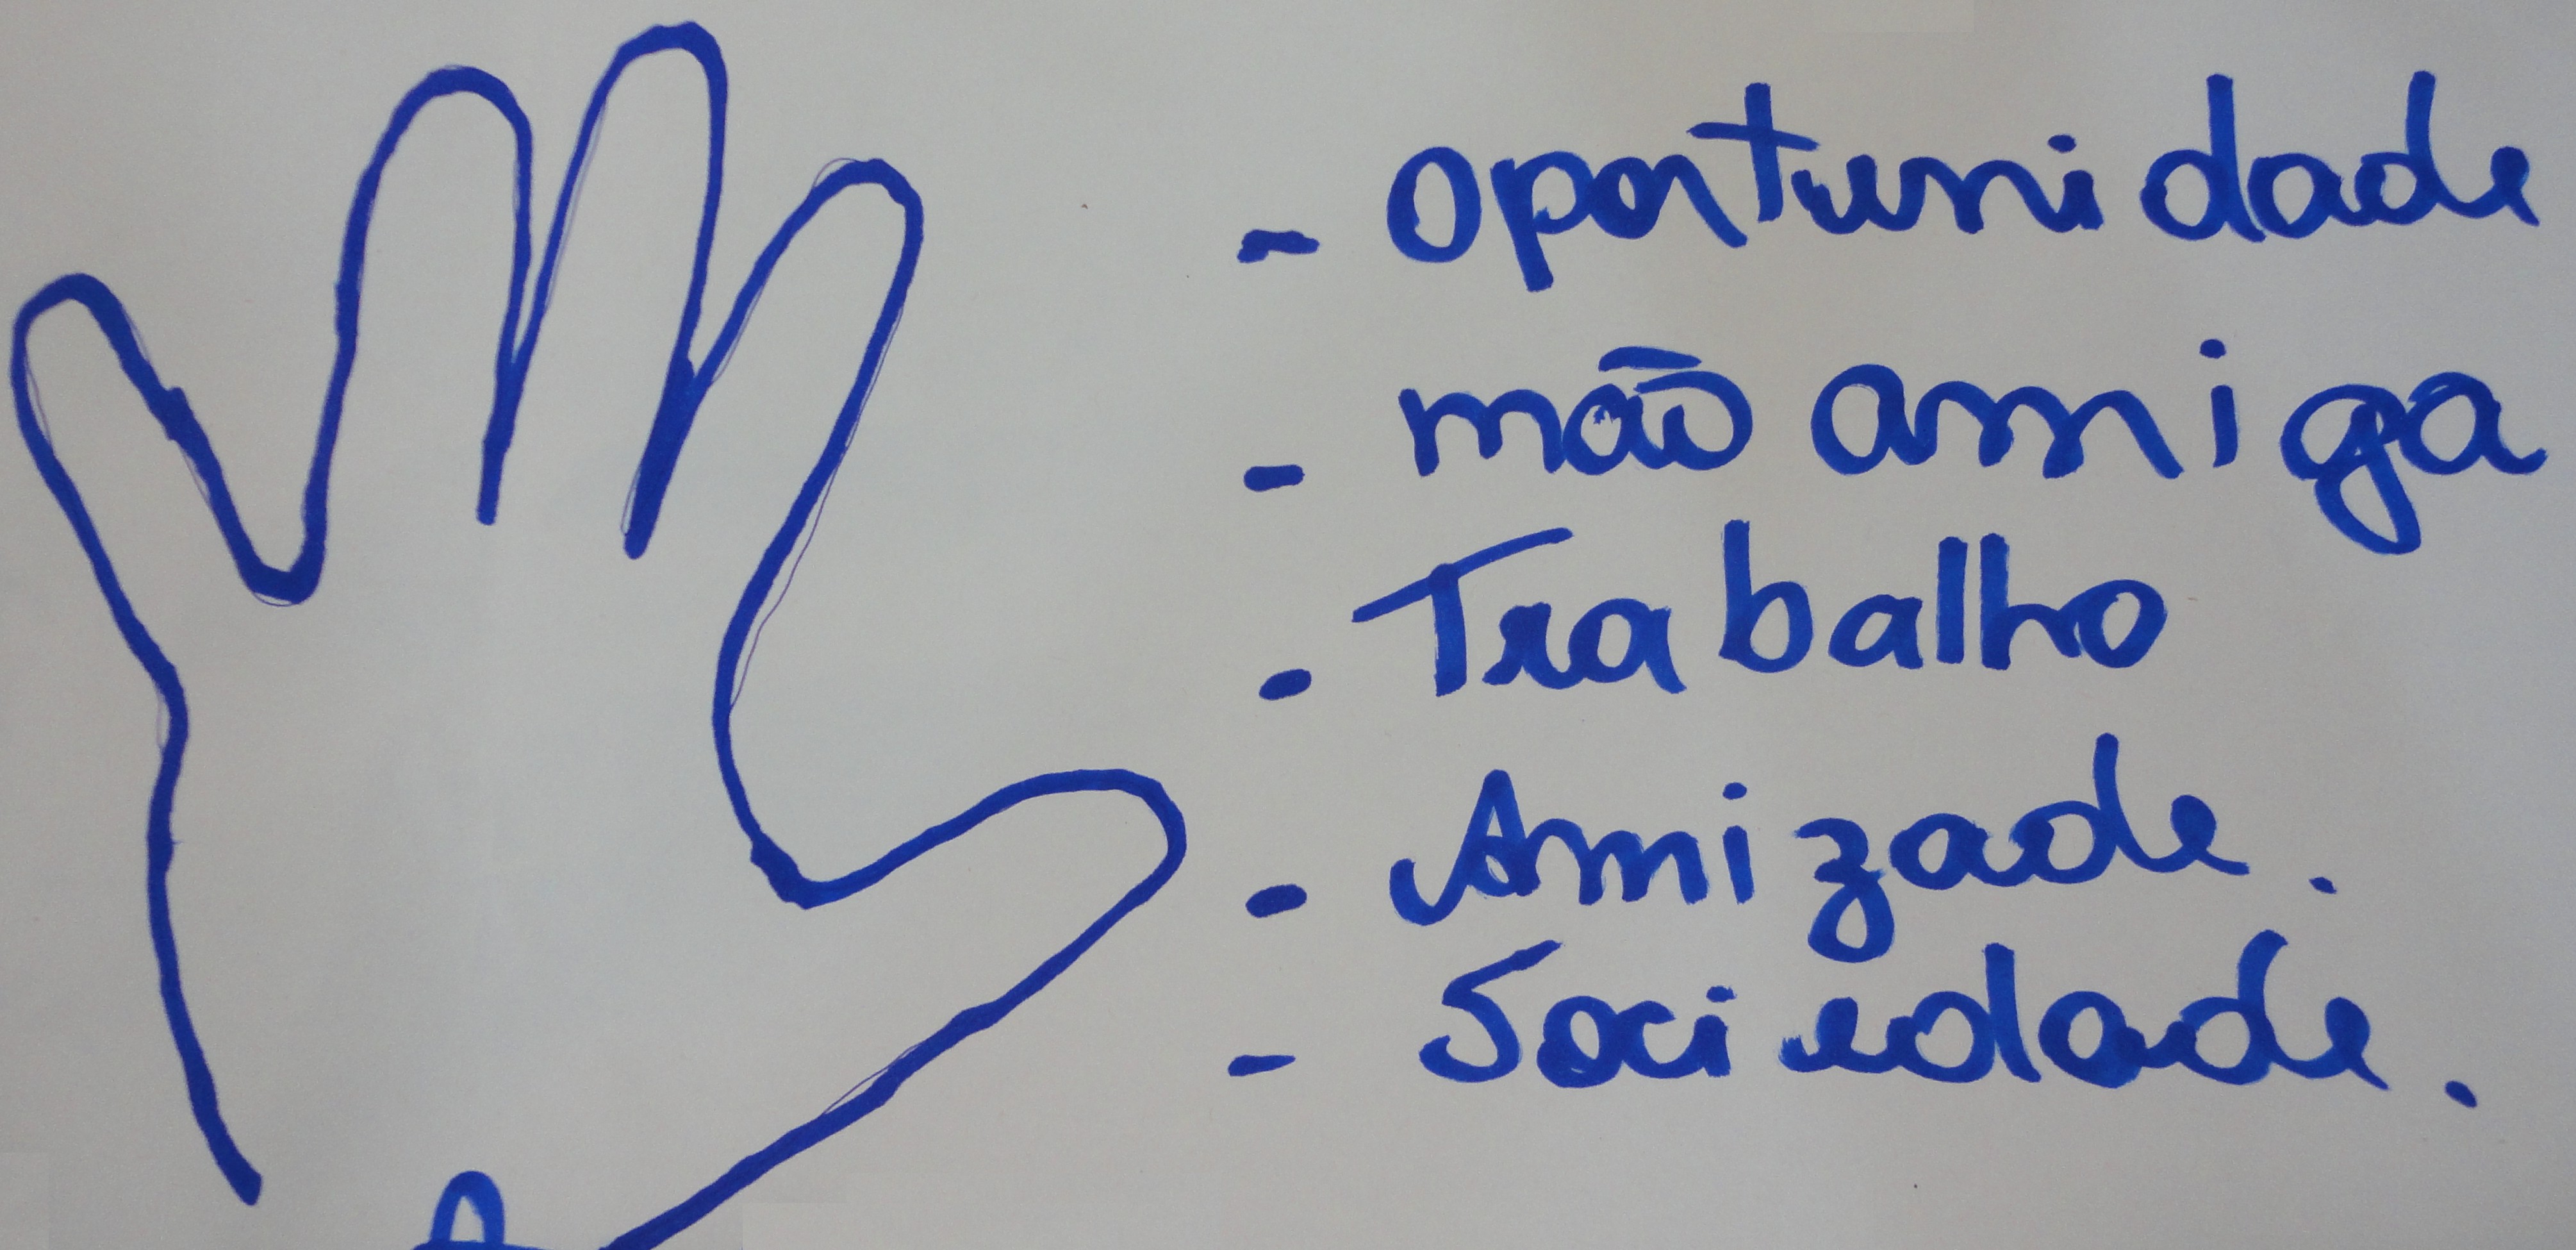 - oportunidade
- mão amiga
- Trabalho
- Amizade.
- Sociedade.